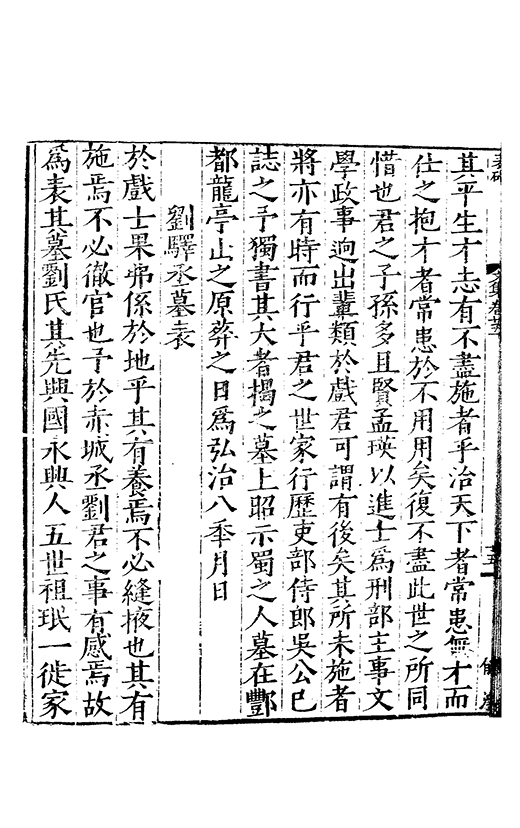 其平生才志有不盡施者乎治天下者常患無才而
仕之抱才者常患於不用用矣復不盡此世之所同
惜也君之子孫多且賢孟瑛以進士為刑部主事文
學政事迥出輩類於戲君可謂有後矣其所未施者
將亦有時而行乎君之世家行歷吏部侍郎吳公已
誌之予獨書其大者揭之墓上昭示蜀之人墓在酆
都龍亭山之原葬之日爲弘治八年月日
劉驛丞墓表
於戲士果弗係於地乎其有養焉不必縫掖也其有
施焉不必徹官也予於赤城丞劉君之事有感焉故
爲表其墓劉氏其先興國永興人五世祖珉一徙家